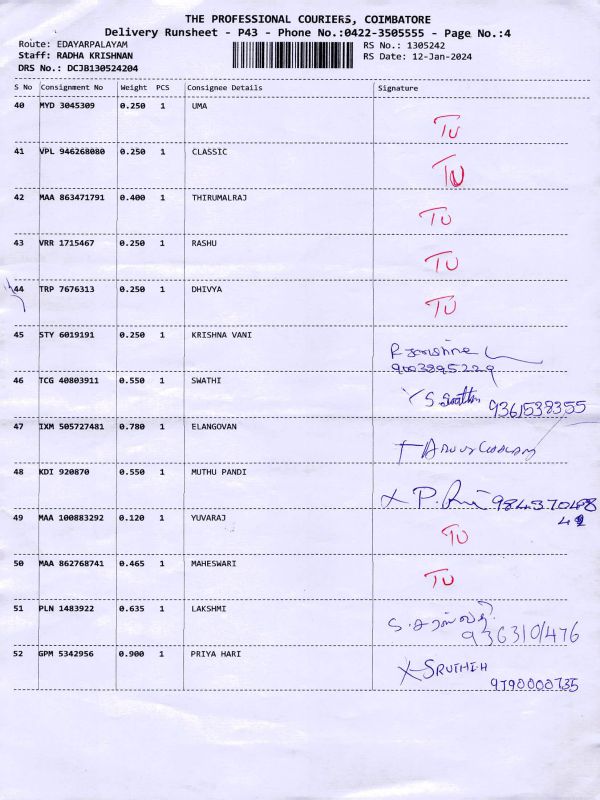 THE PROFESSIONAL COURIERS, COIMBATORE
Delivery Runsheet - P43 - Phone No.:0422-3505555 - Page No.:4
Route: EDAYARPALAYAM
Staff: RADHA KRISHNAN
DRS No.: DCJB130524204
RS No.: 1305242
RS Date: 12-Jan-2024
S No Consignment No Weight PCS Consignee Details Signature
40 MYD 3045309 0.250 1 UMA
TU
41 VPL 946268080 0.250 1 CLASSIC
TU
42 MAA 863471791 0.400 1 THIRUMALRAJ
TU
43 VRR 1715467 0.250 1 RASHU
TU
44 TRP 7676313 0.250 1 DHIVYA
TU
45 STY 6019191 0.250 1 KRISHNA VANI
9003895229
46 TCG 40803911 0.550 1 SWATHI
S. Swathi 9361538355
47 IXM 505727481 0.780 1 ELANGOVAN
48 KDI 920870 0.550 1 MUTHU PANDI
X P.
49 MAA 100883292 0.120 1 YUVARAJ
TU
50 MAA 862768741 0.465 1 MAHESWARI
TU
51 PLN 1483922 0.635 1 LAKSHMI
9363101476
52 GPM 5342956 0.900 1 PRIYA HARI
X SRUTHI.H
9790000735